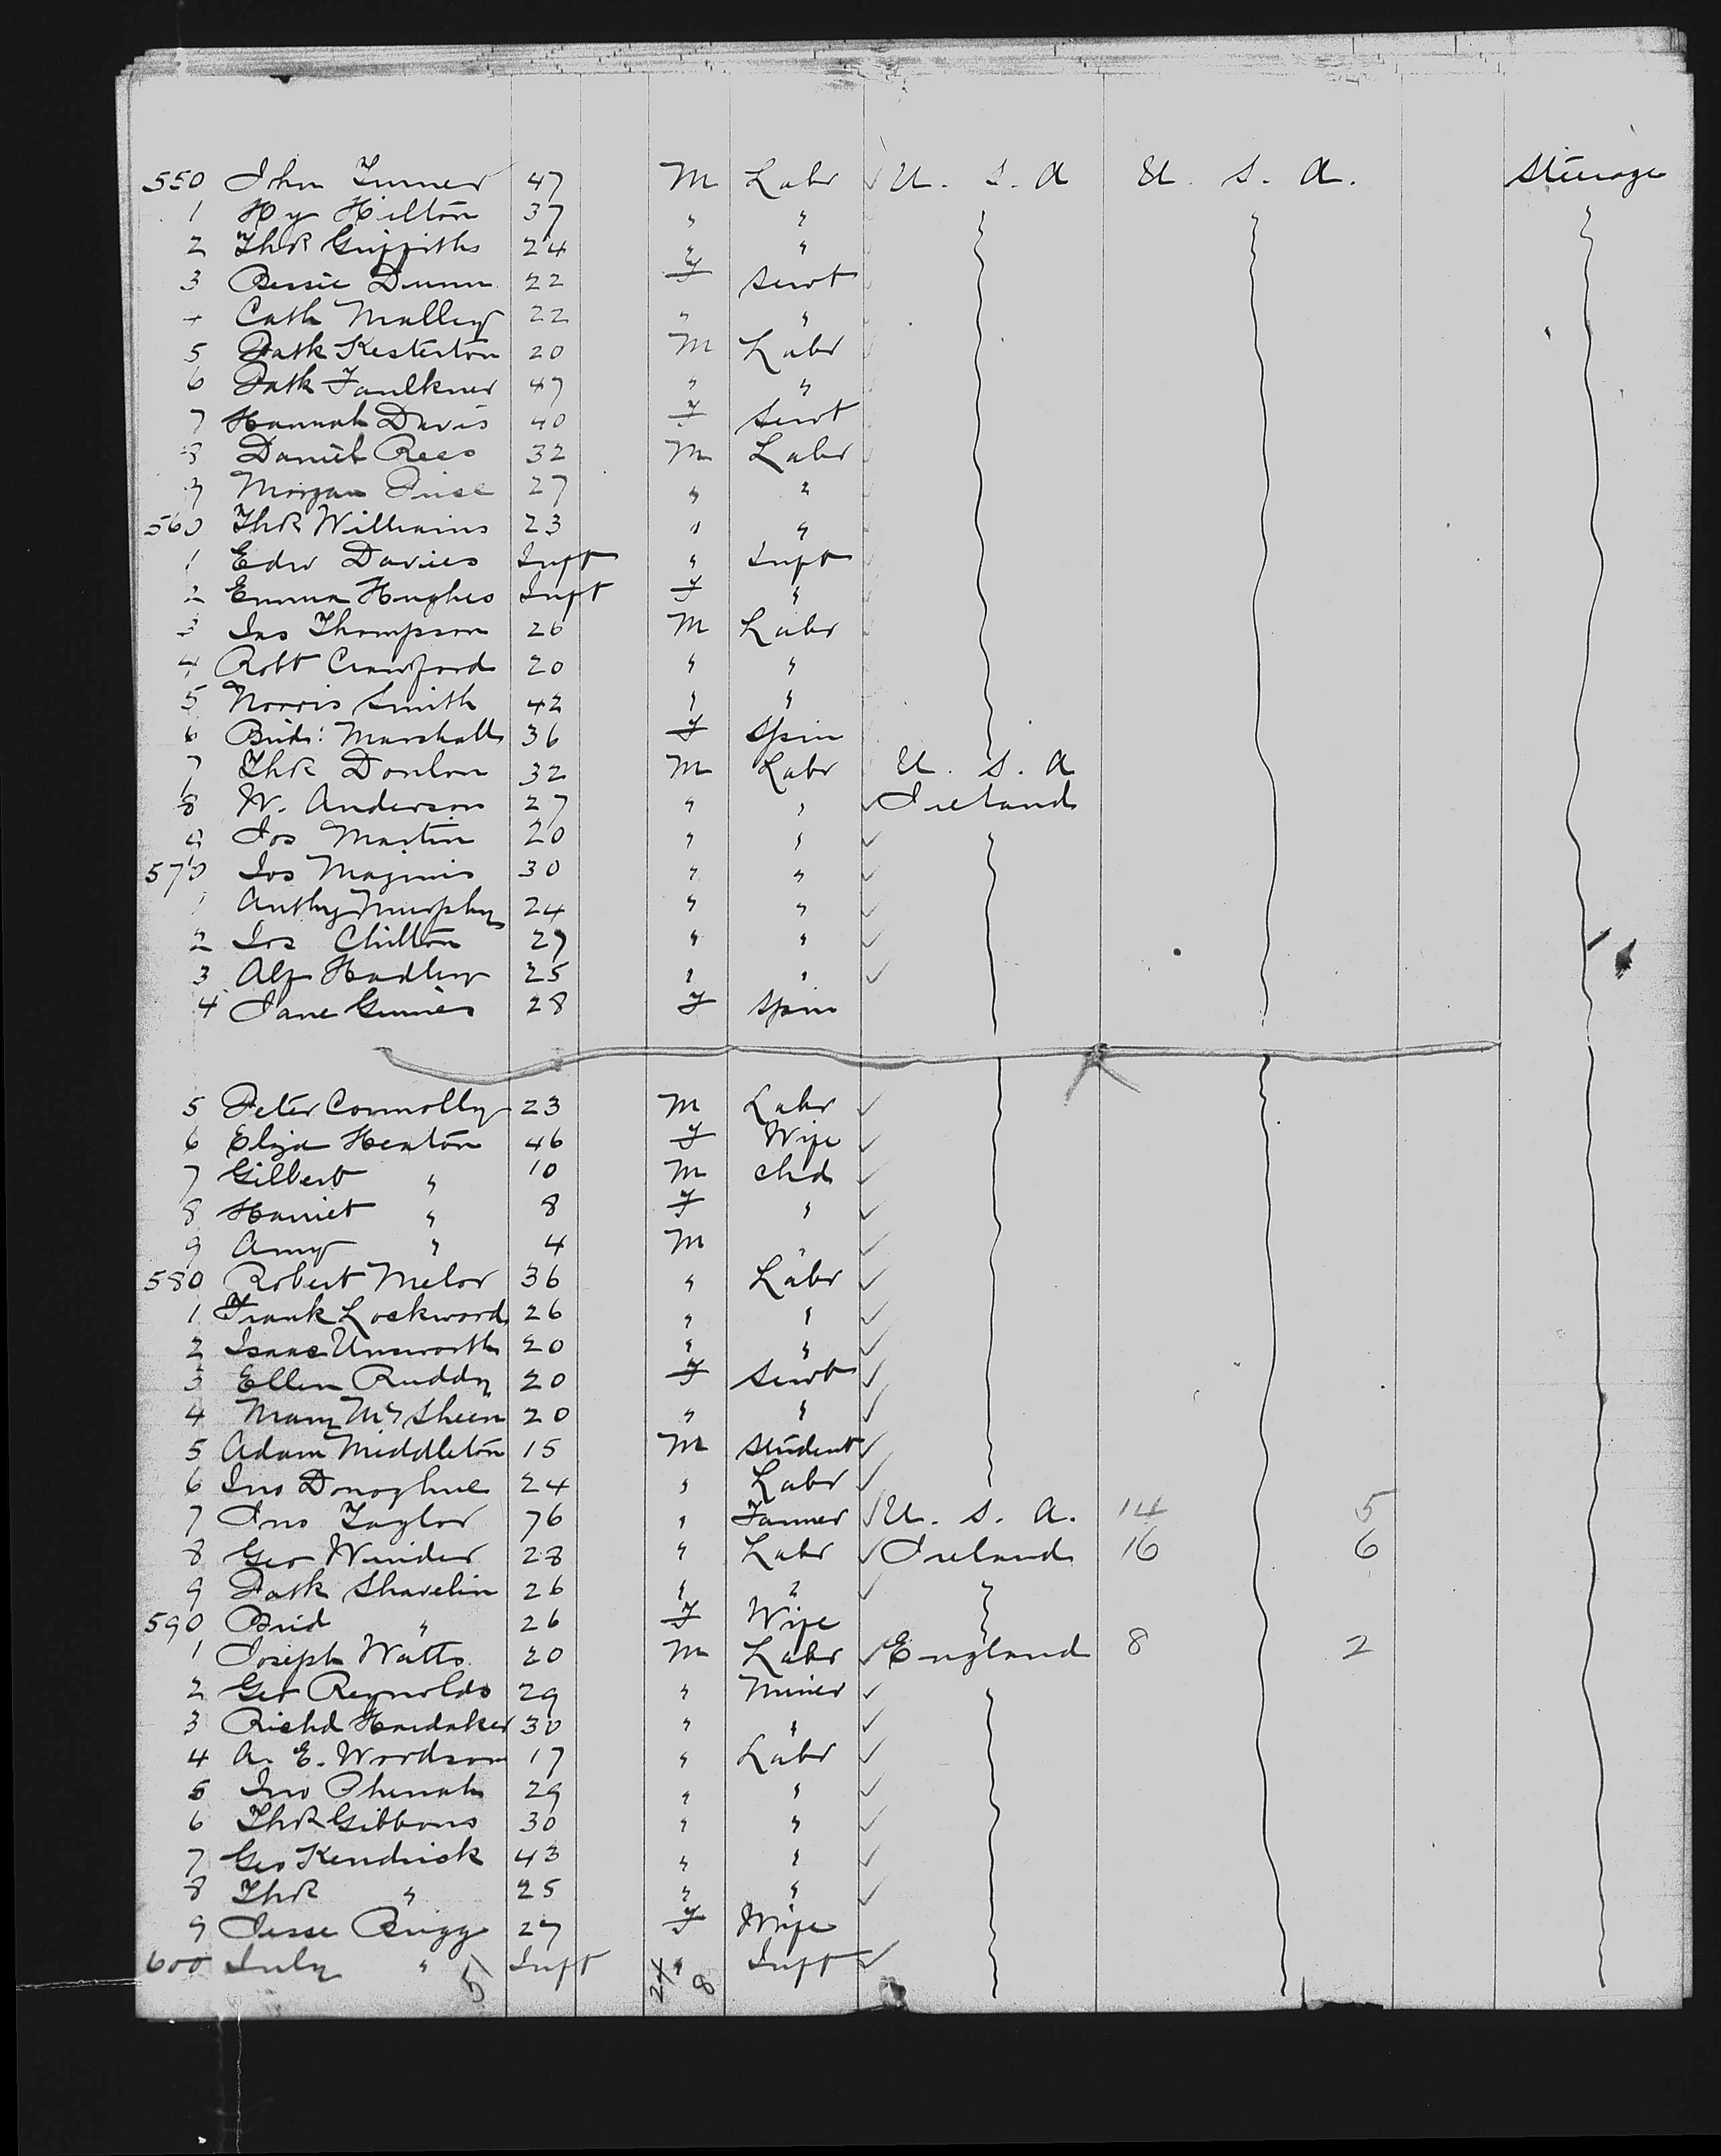 550 John Turner 47 M Labr U. S. A U. S. A. Steerage
1 Hy Hilton 37 " "
2 Thos Griffiths 24 " "
3 Bessie Dunn 22 F Servt
4 Cath Malley 22 " "
5 Patk Kesterton 20 M Labr
6 Patk Faulkner 47 " "
7 Hannah Davis 40 F Servt
8 Daniel Rees 32 M Labr
9 Morgan 27 " "
560 Thos Williams 23 " "
1 Edw Davies Inft " Inft
2 Emma Hughes Inft F "
3 Jas Thompson 26 M Labr
4 Robt Crawford 20 " "
5 Norris Smith 42 " "
6 Brid: Marshall 36 F Spin
7 Thos Donlon 32 M Labr U. S. A
8 W. Anderson 27 " " Ireland
9 Jos Martin 20 " "
570 Jos Maginis 30 " "
1 Anthy Murphy 24 " "
2 Jos Chilton 27 " "
3 Alf Hadley 25 " "
4 Jane 28 F Spin
5 Peter Connolly 23 M Labr
6 Eliza Heaton 46 F Wife
7 Gilbert " 10 M Chd
8 Harriet " 8 F "
9 Amy " 4 M "
580 Robert Melor 36 " Labr
1 Frank Lockwood 26 " "
2 Isaac Unsworth 20 " "
3 Ellen Ruddy 20 F Servt
4 Mary McSheen 20 " "
5 Adam Middleton 15 M Student
6 Jno Donoghue 24 " Labr
7 Jno Taylor 76 " Farmer U. S. A. 14 5
8 Geo Winder 28 " Labr Ireland 16 6
9 Patk Shavelin 26 " "
590 Brid " 26 F Wife
1 Joseph Watts 20 M Labr England 8 2
2 Geo Reynolds 29 " Miner
3 Richd Hardaker 30 " "
4 A. E. Woodson 17 " Labr
5 Jno 29 " "
6 Thos Gibbons 30 " "
7 Geo Kendrick 43 " "
8 Thos " 25 " "
9 Jesse Brigg 27 F Wife
600 July " Inft " Inft
5 24 8